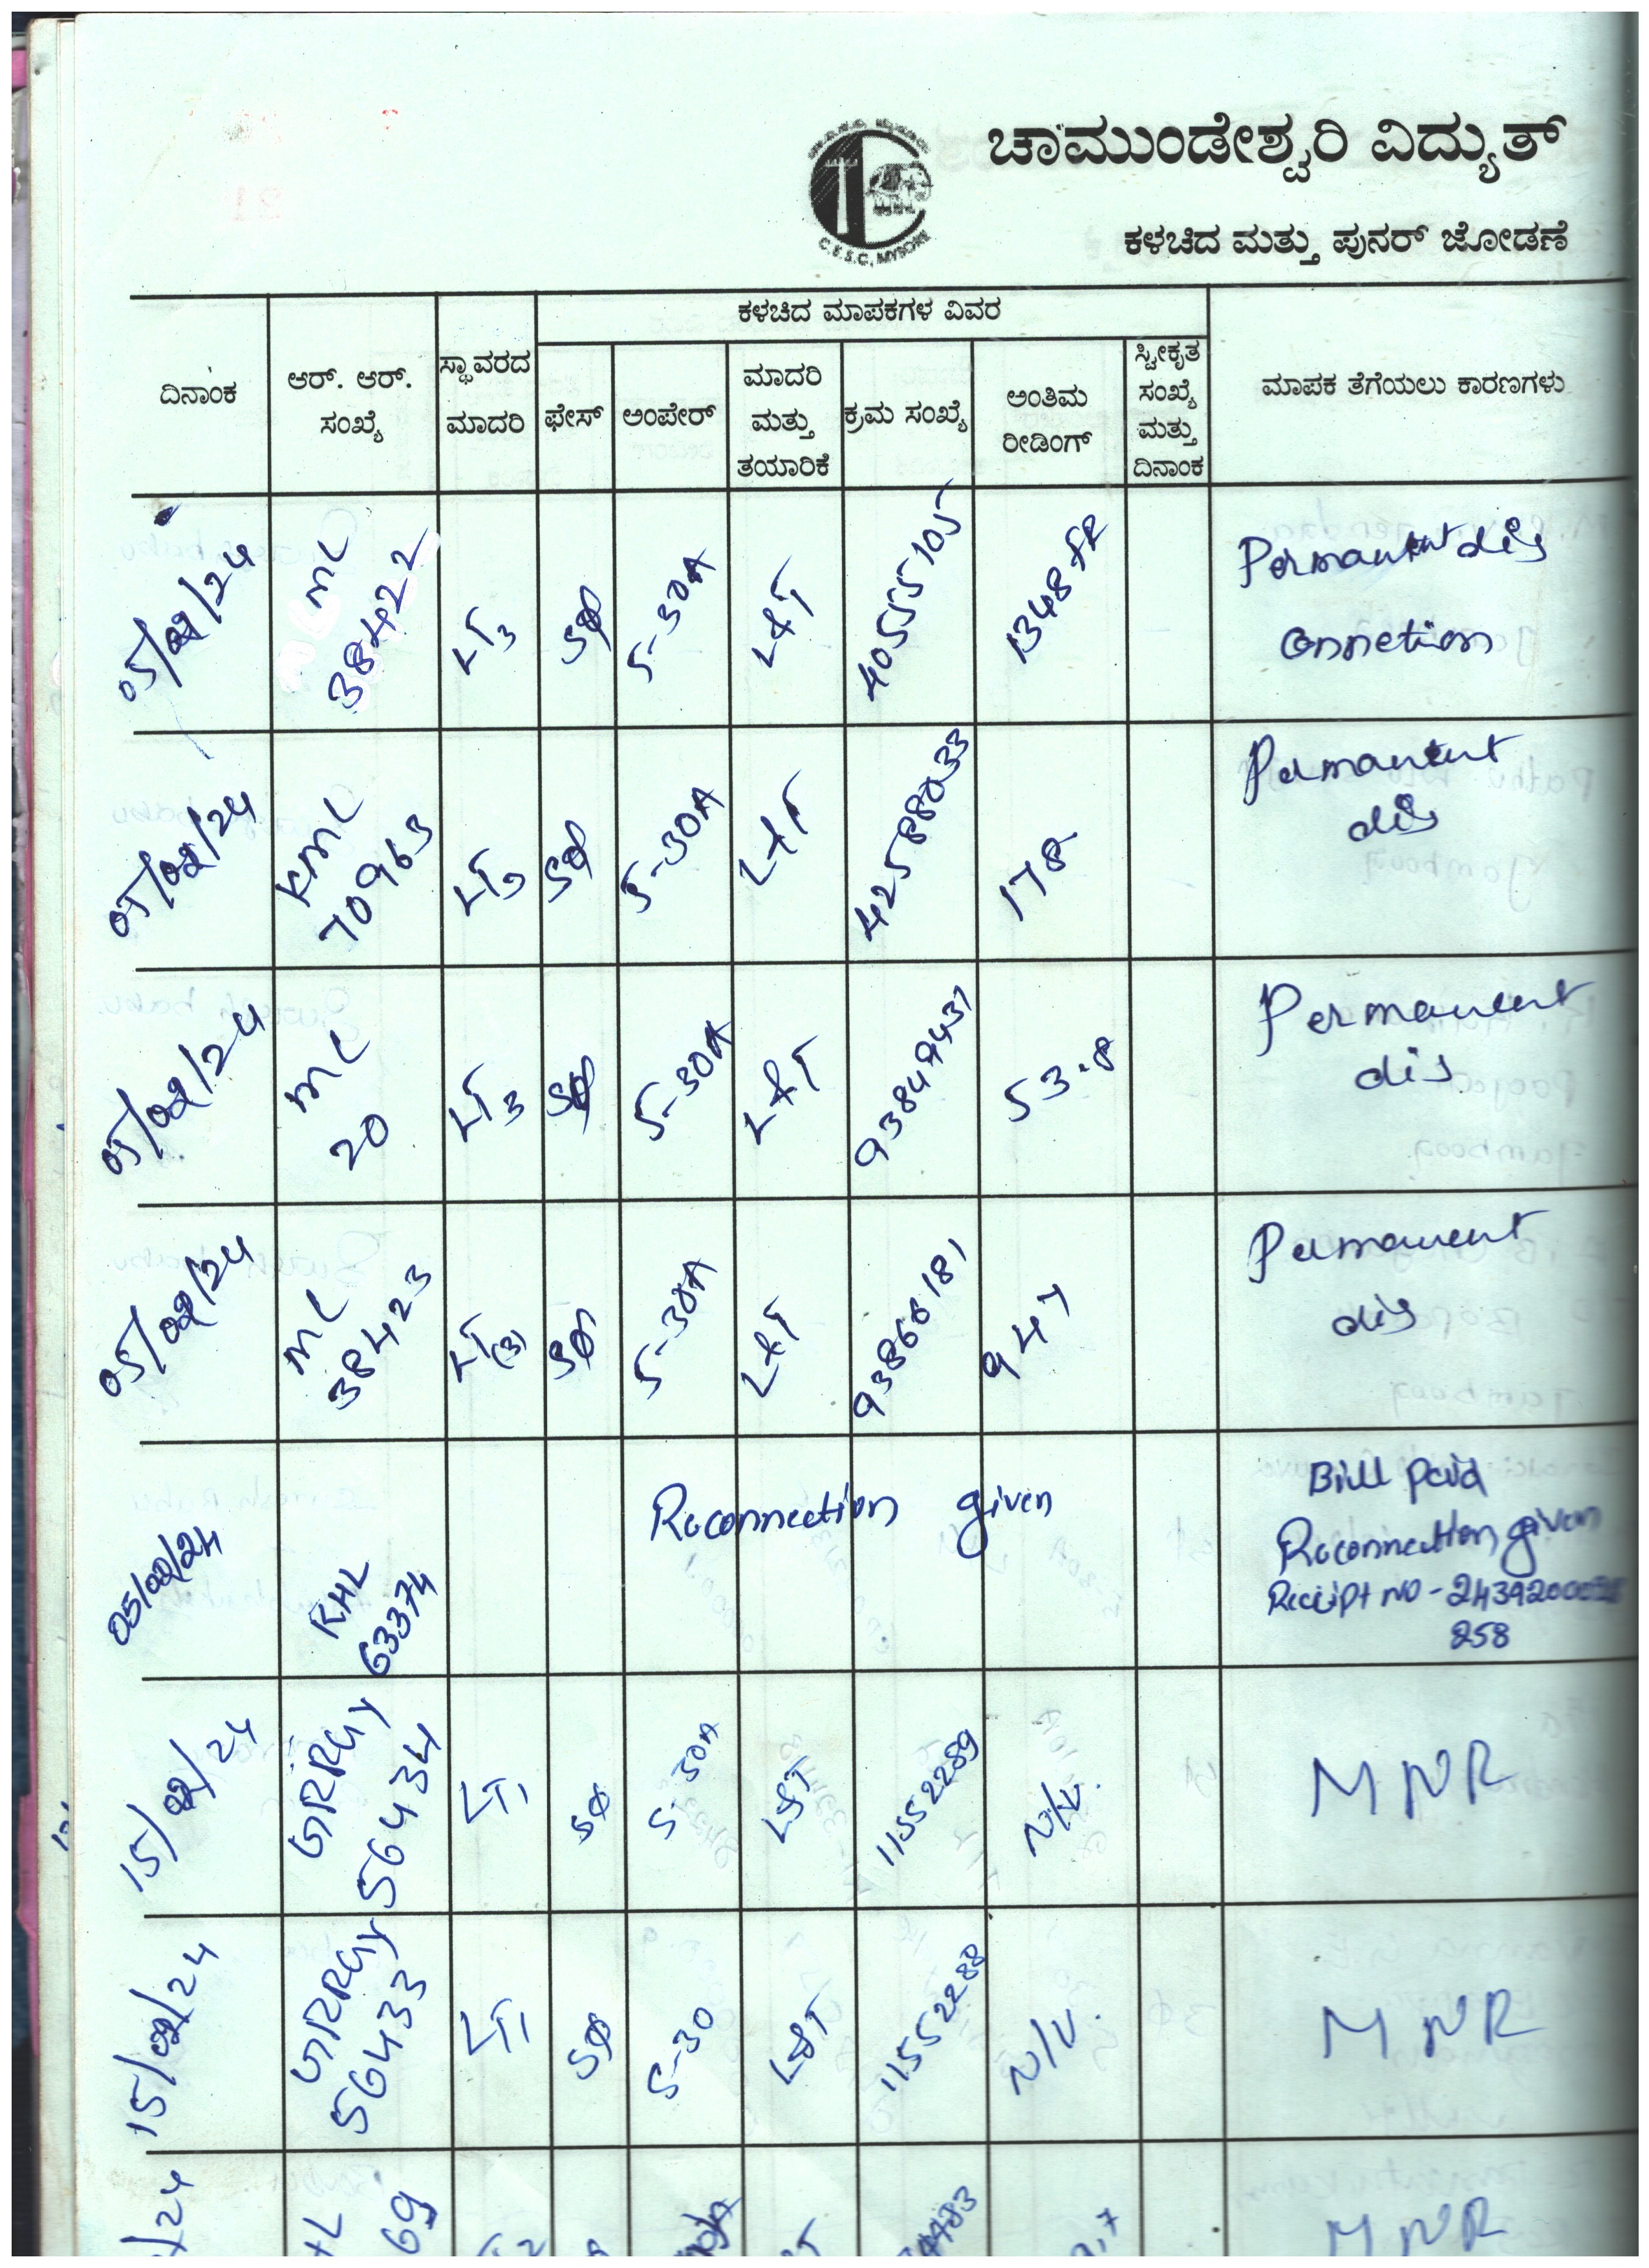 ಚಾಮುಂಡೇಶ್ವರಿ ವಿದ್ಯುತ್
C.E.S.C, MYSORE
ಕಳಚಿದ ಮತ್ತು ಪುನರ್ ಜೋಡಣೆ
ಕಳಚಿದ ಮಾಪಕಗಳ ವಿವರ
ದಿನಾಂಕ
ಆರ್. ಆರ್.
ಸಂಖ್ಯೆ
ಸ್ಥಾವರದ
ಮಾದರಿ
ಫೇಸ್
ಅಂಪೇರ್
ಮಾದರಿ
ಮತ್ತು
ತಯಾರಿಕೆ
ಕ್ರಮ ಸಂಖ್ಯೆ
ಅಂತಿಮ
ರೀಡಿಂಗ್
ಸ್ವೀಕೃತ
ಸಂಖ್ಯೆ
ಮತ್ತು
ದಿನಾಂಕ
ಮಾಪಕ ತೆಗೆಯಲು ಕಾರಣಗಳು
05/02/24
ML
38422
LT3
Sφ
5-30A
L&T
40555105
1348 FR
Permanent dis
onnetion
05/02/24
KML
70963
LT3
Sφ
5-30A
L&T
42588033
178
Permanent
dis
05/02/24
ML
20
LT3
Sφ
5-30A
L&T
53.8
Permanent
dis
05/02/24
ML
38423
LT(3)
Sφ
5-30A
L&T
93866181
947
Permanent
dis
05/02/24
RHL
63374
Reconnection given
Bill paid
Reconnection given
Reciipt NO -
258
15/02/24
56434
LT1
Sφ
5-30A
L&T
11552289
N/V.
MNR
15/02/24
56433
LT1
Sφ
5-30
L&T
11552288
N/V.
MNR
/24
69
MNR